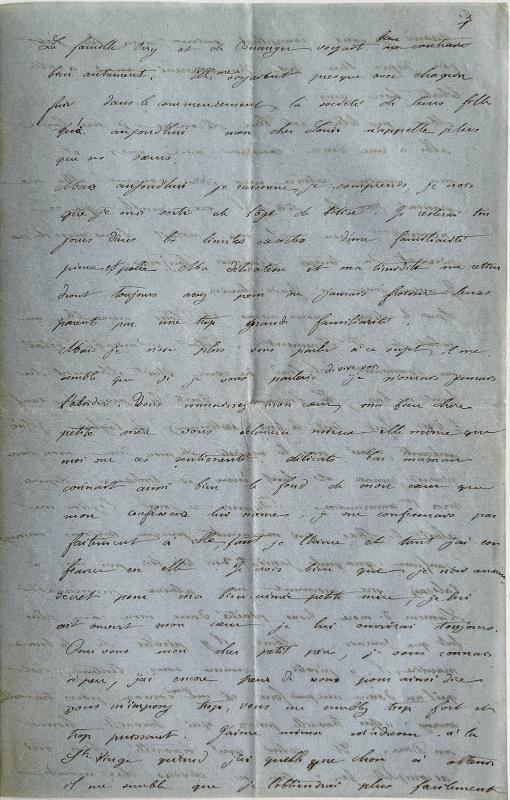 7
La famille et de voyait bien contraire
bien autrement. Ils me voyaient presque avec chagrin
fuir dans le commencement, la société de leurs filles
qu'aujourd'hui mon cher Louis n'appelle plus
que nos sœurs.
Mais aujourd'hui je raisonne, je comprends, je vois
que je suis sorti de l'âge de bêtise. Je resterai tou
jours dans les limites exactes d'une familiarité
pieuse et polie. Ma délicatesse et ma timidité me retien
dront toujours assez pour ne jamais froisser leurs
parents par une trop grande familiarité.
Mais je n'ose plus vous parler à ce sujet, il me
semble que si je vous parlais de vive voix je n'oserais jamais
l'aborder. Vous connaissez mon cœur, ma bien chère
petite mère vous mieux elle même que
moi sur ces sentiments délicats. Car maman
connait aussi bien le fond de mon cœur que
mon confesseur lui même, je me confesserais par
faitement à elle, tant je l'aime et tant j'ai con
fiance en elle. Je crois bien que je n'eus aucun
secret pour ma bien-aimée petite mère, je lui
ait ouvert mon cœur je lui ouvrirai toujours.
Pour vous mon cher petit père, je vous connais
si peu, j'ai encore peur de vous pour ainsi dire
vous m'imposez trop, vous me semblez trop fort et
trop puissant. J'aime mieux m'adresser à la
Ste Vierge quand j'ai quelque chose à obtenir
il me semble que je l'obtiendrai plus facilement